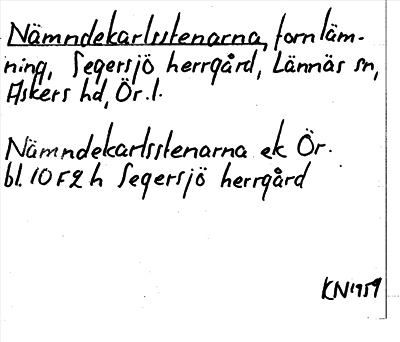 Nämndekarlsstenarna, fornläm-
ning, Segersjö herrgård, Lännäs sn,
Askers hd, Ör. l.
Nämndekarlsstenarna ek Ör.
bl. 10 F 2 h Segersjö herrgård
KN 1959